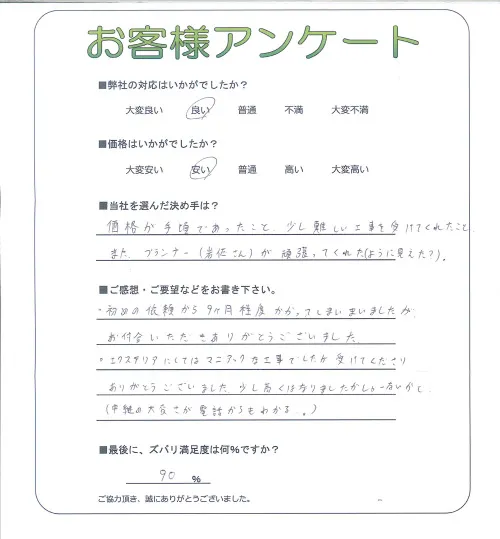 お客様アンケート
■弊社の対応はいかがでしたか？
大変良い 良い 普通 不満 大変不満
■価格はいかがでしたか？
大変安い 安い 普通 高い 大変高い
■当社を選んだ決め手は？
価格が手頃であったこと、少し難しい工事を受けてくれたこと、
また、プランナー（岩佐さん）が頑張ってくれた（ように見えた？）。
■ご感想・ご要望などをお書き下さい。
・初めの依頼から9ヶ月程度かかってしまいましたが、
お付合いいただきありがとうございました。
・エクステリアにしてはマニアックな工事でしたが受けてくださり
ありがとうございました。少し高くはなりましたが
（中継の大変さが電話からもわかる。。）
■最後に、ズバリ満足度は何％ですか？
90 ％
ご協力頂き、誠にありがとうございました。